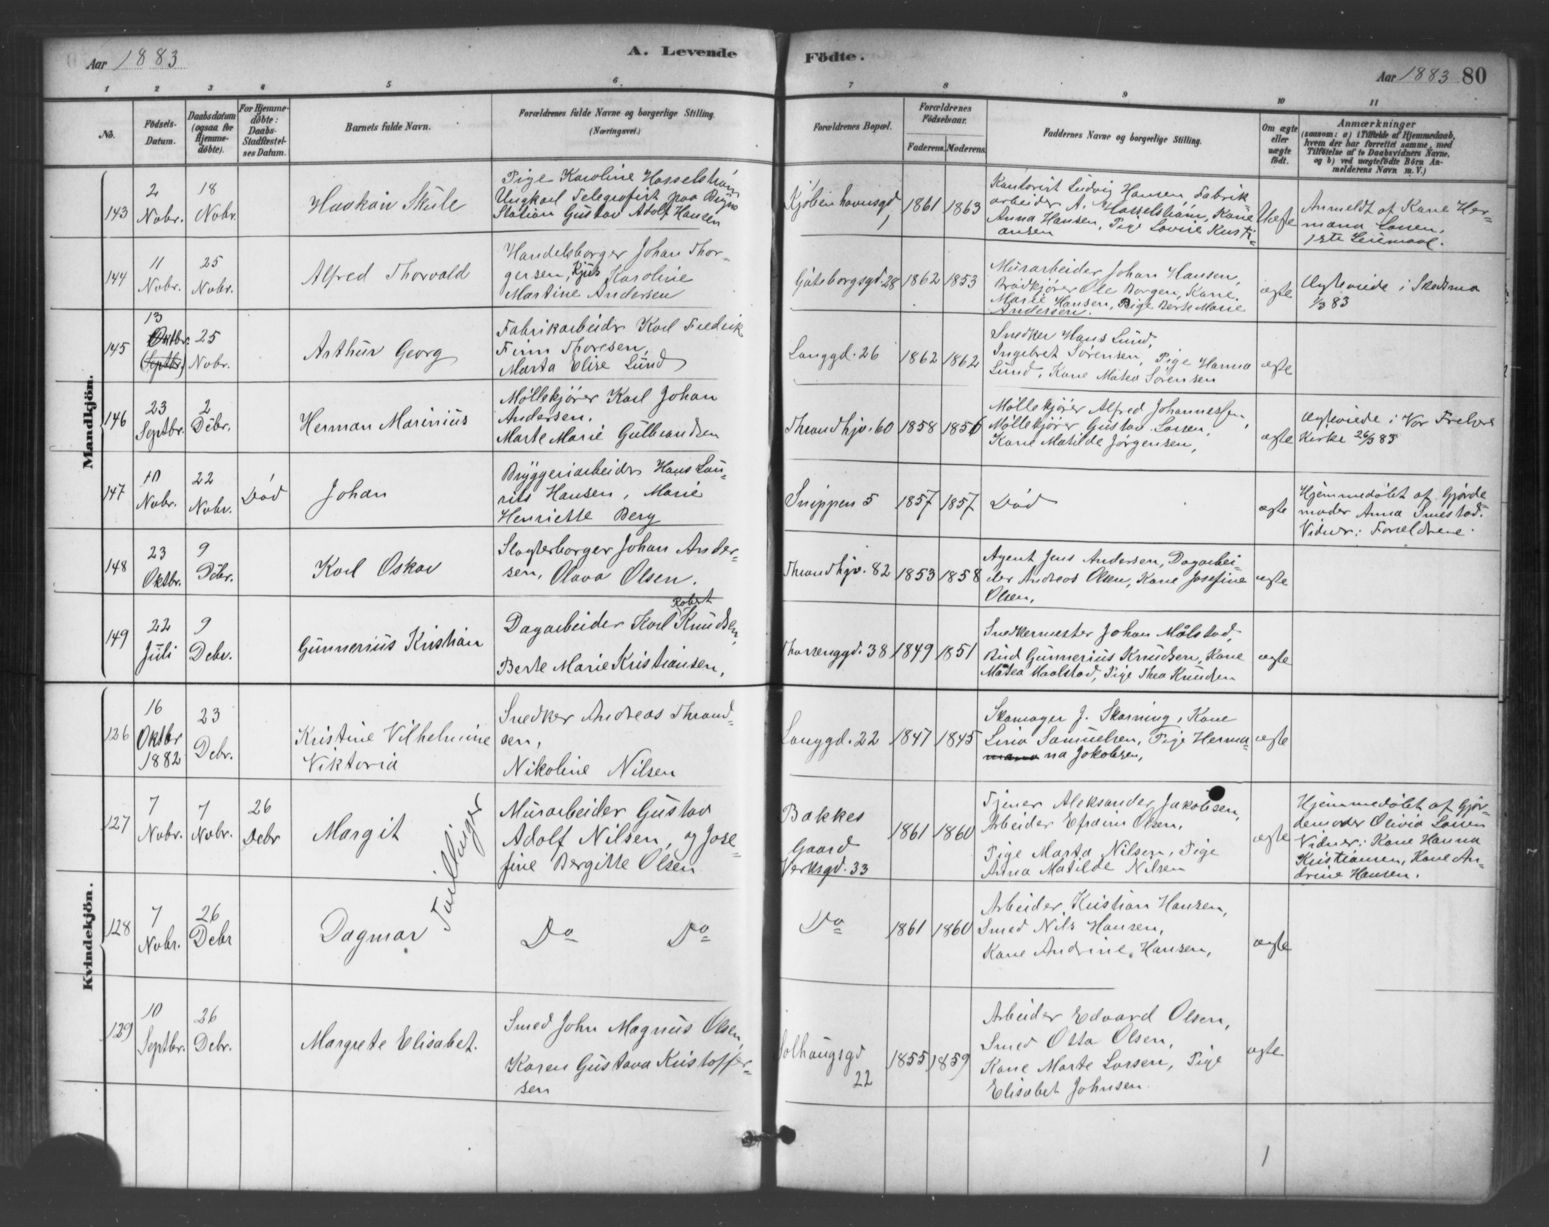 Aar 1883
A. Levende
Födte.
Aar 1883 80
1 2 3 4 5 6 7 8 9 10 11
No.
Födsels-
Datum.
Daabsdatum
(ogsaa for
Hjemme-
döbte).
For Hjemme-
döbte:
Daabs-
Stadfæstel-
ses Datum.
Barnets fulde Navn.
Forældrenes fulde Navne og borgerlige Stilling.
(Næringsvei.)
Forældrenes Bopæl.
Forældrenes
Födselsaar.
Faderens. Moderens.
Faddernes Navne og borgerlige Stilling.
Om ægte
eller
uægte
födt.
Anmærkninger
(saasom: a) i Tilfælde af Hjemmedaab,
hvem der har forrettet samme, med
Tilföielse af to Daabsvidners Navne,
og b) ved uægtefödte Börn An-
melderens Navn m. V.)
Mandkjön.
143
2
Novbr.
18
Novbr.
Haakon Skule
Pige Karoline Hasselström
Ungkarl Telegrafist paa Bryn
Station Gustav Adolf Hansen
Kjöbenhavnsgd
1
1861 1863
Kontorist Ludvig Hansen, Fabrik-
arbeider A. Hasselström, Kone
Anna Hansen, Pige Lovise Kristi-
ansen
Uægte
Anmeldt af Kone Her-
mana Larsen.
1ste Leiemaal.
144
11
Novbr.
25
Novbr.
Alfred Thorvald
Handelsborger Johan Thor-
gersen, Kjus Karoline
Martine Andersen
Göteborgsgd 28
1862 1853
Murarbeider Johan Hansen,
Brödkjörer Ole Borgen, Kone
Marie Hansen, Pige Berte Marie
Andersen.
ægte
Ægteviede i Skedsmo
83
145
13
Oktbr.
(Septbr)
25
Novbr.
Arthur Georg
Fabrikarbeider Karl Fredrik
Finn Thoresen,
Marta Elise Lund
Langgd. 26
1862 1862
Snedker Hans Lund,
Ingebret Sörensen, Pige Hanna
Lund, Kone Mathea Sörensen
ægte
146
23
Septbr.
2
Debr.
Herman Marinius
Möllekjörer Karl Johan
Andersen,
Marte Marie Gulbrandsen
Throndhjv. 60
1858 1856
Möllekjörer Alfred Johannessen,
Möllekjörer Gustav Larsen,
Kone Matilde Jörgensen,
ægte
Ægteviede i Vor Frelsers
Kirke 83
147
10
Novbr.
22
Novbr.
Död
Johan
Bryggeriarbeider Hans Lau-
rits Hansen, Marie
Henriette Berg
Snippen 5
1857 1857
Död
ægte
Hjemmedöbt af Gjorde
moder Anna Smestad.
Vidner: Forældrene.
148
23
Oktbr.
9
Debr.
Karl Oskar
Slagterborger Johan Ander-
sen, Olava Olsen.
Throndhjv. 82
1853 1858
Agent Jens Andersen, Dagarbei-
der Andreas Olsen, Kone Josefine
Olsen,
ægte
149
22
Juli
9
Debr.
Gunnerius Kristian
Robert
Dagarbeider Karl Knudsen,
Berte Marie Kristiansen,
38
1849 1851
Snedkermester Johan Mölstad,
Bud Gunnerius Knudsen, Kone
Mathea Maalstad, Pige Thea Knudsen
ægte
Kvindekjön.
126
16
Oktbr
1882
23
Debr.
Kristine Vilhelmine
Viktoria
Snedker Andreas Thrond-
sen,
Nikoline Nilsen
Langgd. 22
1847 1845
Skomager J. Skorning, Kone
Lina Samuelsen, Pige Herma-
na Jakobsen,
ægte
127
7
Novbr.
7
Novbr.
26
Debr
Margit
Tvillinger
Murarbeider Gustav
Adolf Nilsen, og Jose-
fine Bergitte Olsen
Bakkes
Gaard
Verksgd. 33
1861 1860
Tjener Aleksander Jakobsen,
Arbeider Efraim Olsen,
Pige Marta Nilsen, Pige
Anna Matilde Nilsen
ægte
Hjemmedöbt af Gjor-
demoder Olivia Larsen
Vidner: Kone Hanna
Kristiansen, Kone An-
drine Hansen.
128
7
Novbr.
26
Debr
Dagmar
Do Do
Do
1861 1860
Arbeider Kristian Hansen,
Smed Nils Hansen,
Kone Andrine Hansen,
ægte
129
10
Septbr.
26
Debr.
Margrete Elisabet.
Smed John Magnus Olsen,
Karen Gustava Kristoffer-
sen
Solhaugsgd
22
1855 1859
Arbeider Edvard Olsen,
Smed Otto Olsen,
Kone Marte Larsen, Pige
Elisabet Johnsen
ægte
1